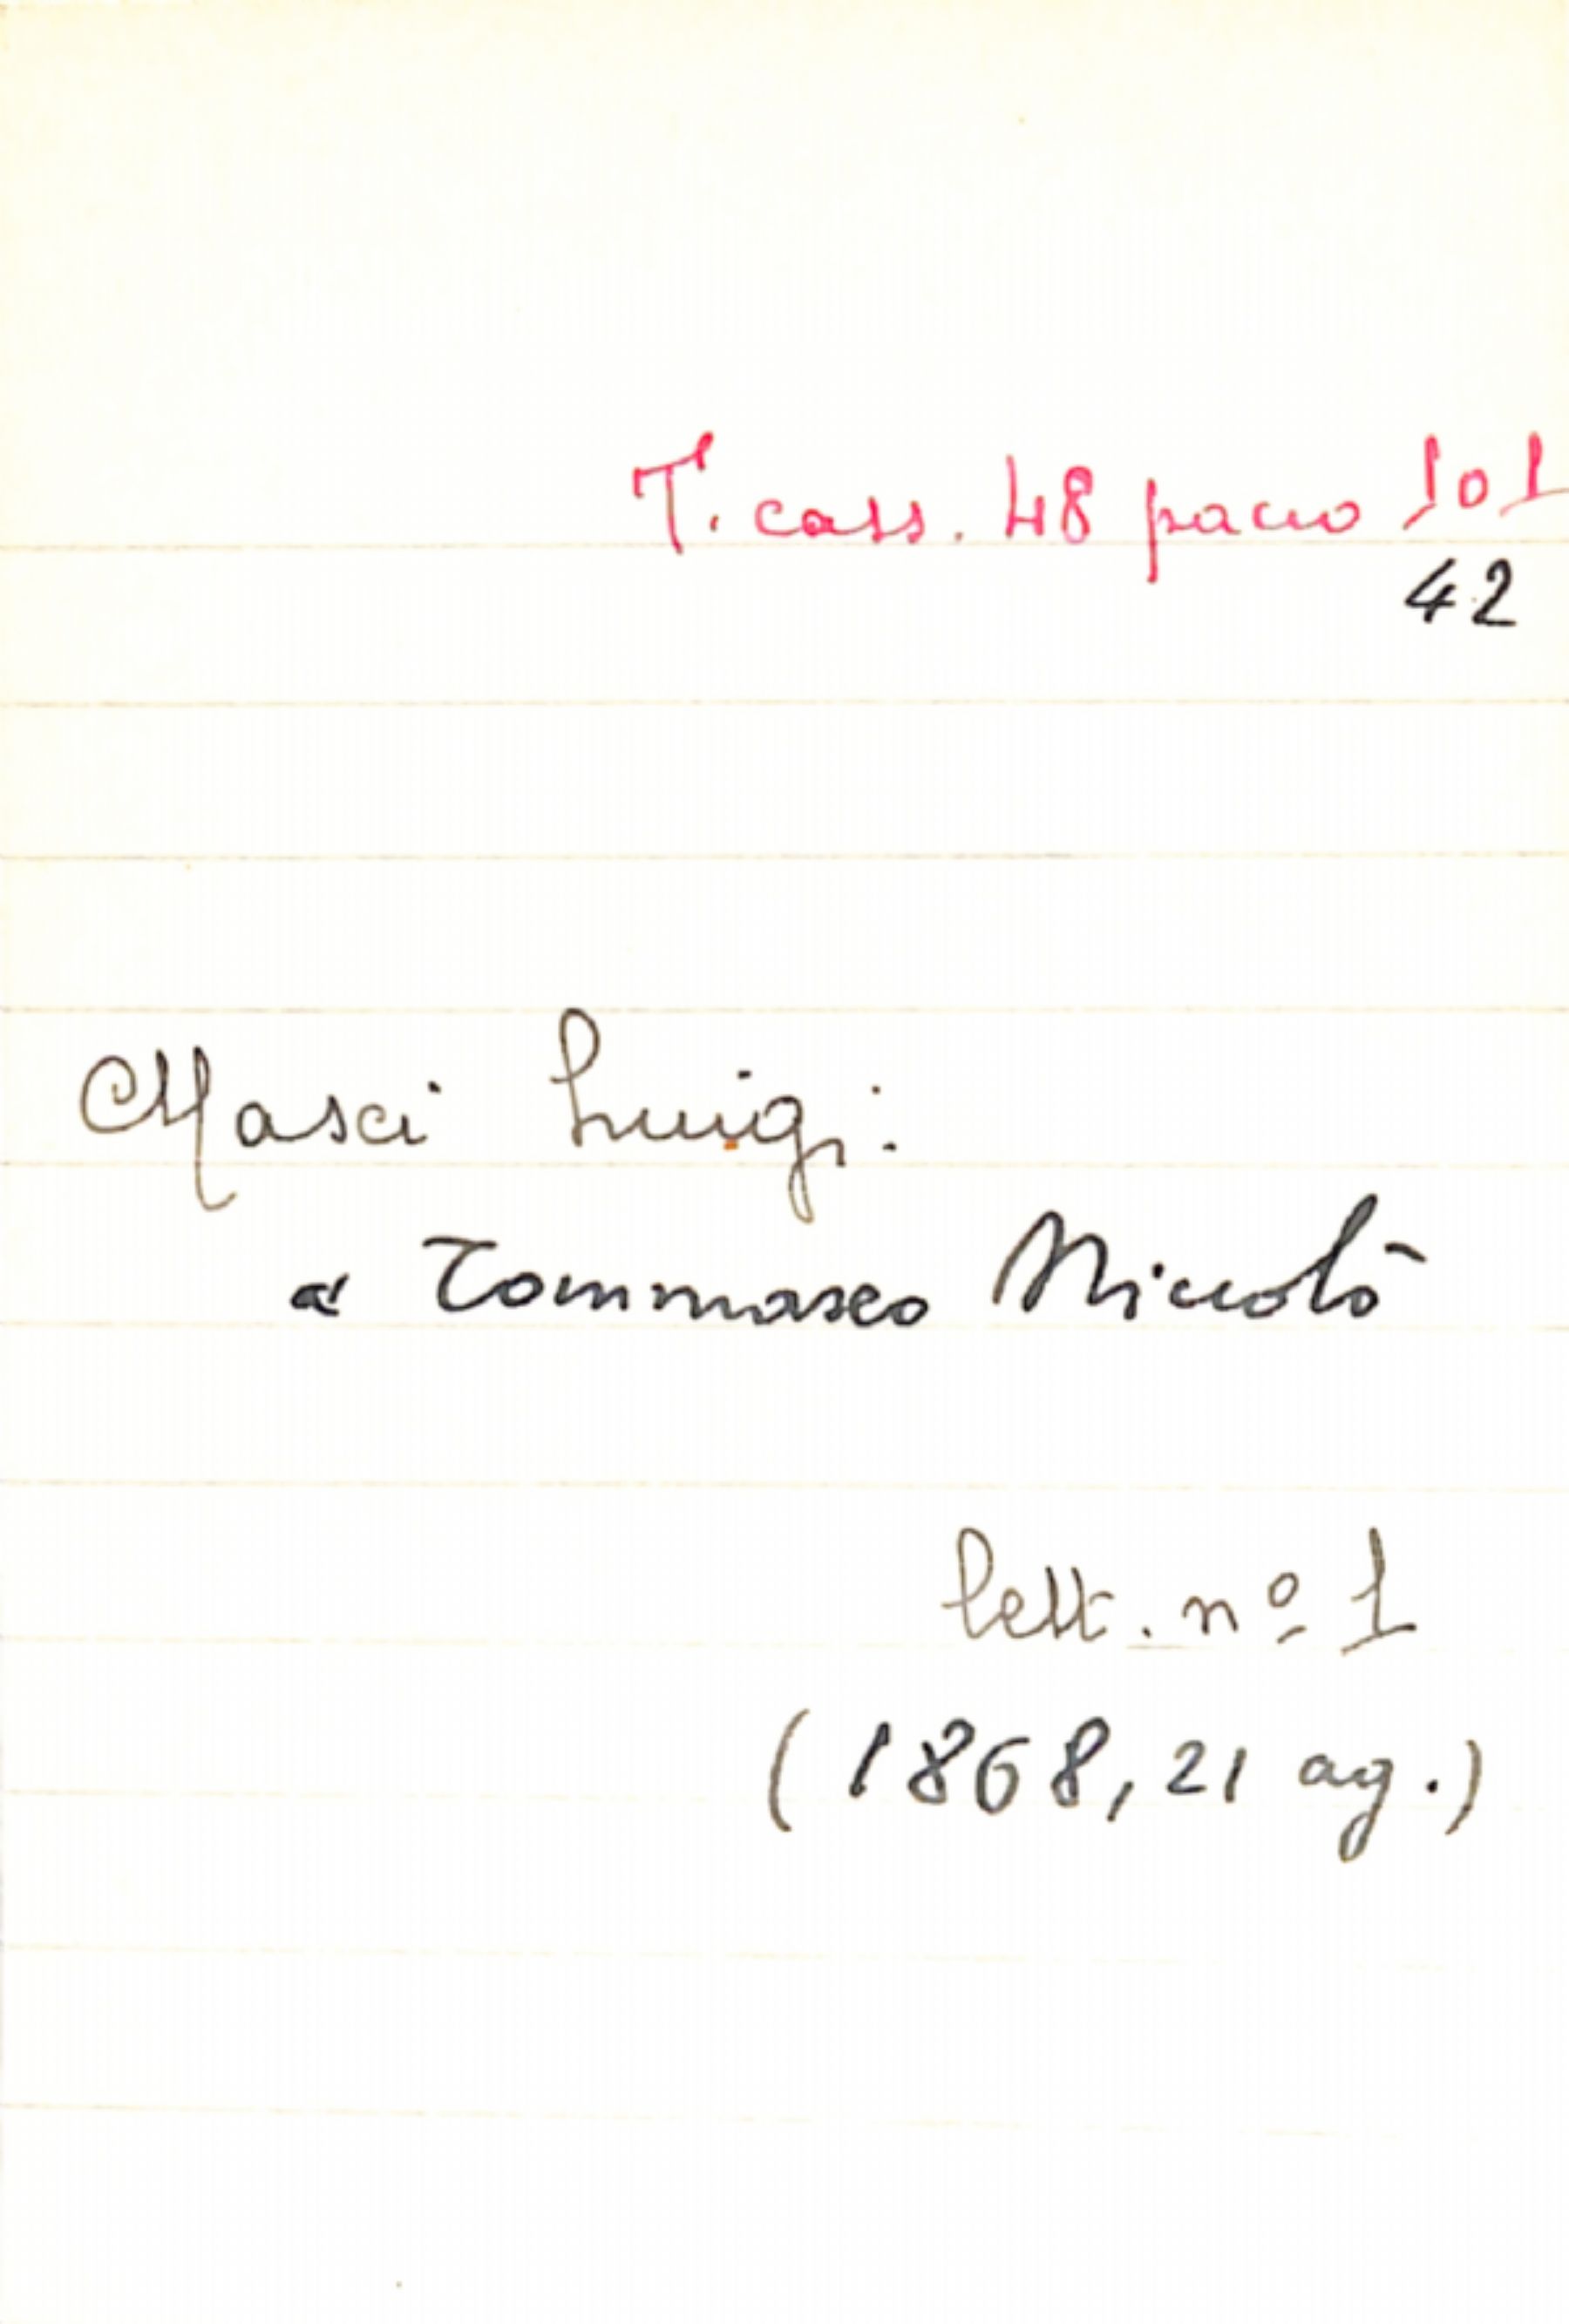 T. cass. 48 pacco 101
42
Masci Luigi.
a Tommaseo Niccolò
lett. nº 1
(1868, 21 ag.)